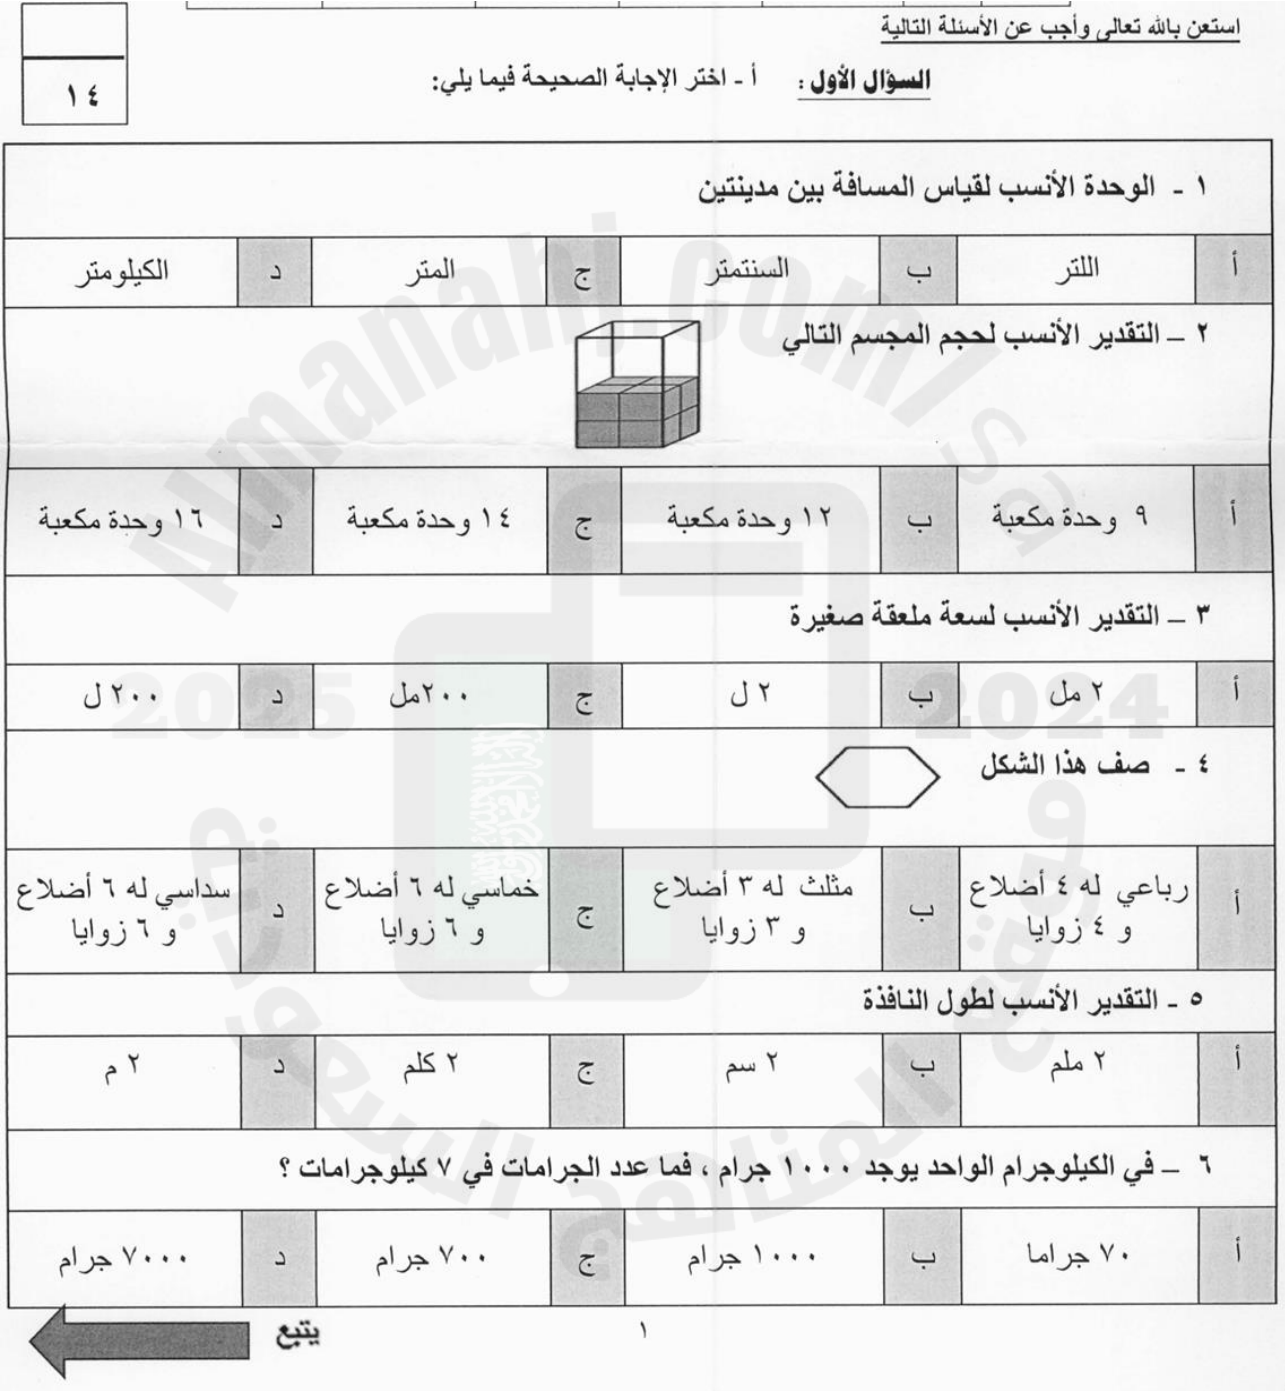 استعن بالله تعالى وأجب عن الأسئلة التالية
السؤال الأول : أ ـ اختر الإجابة الصحيحة فيما يلي:
١٤
١ ـ الوحدة الأنسب لقياس المسافة بين مدينتين
أ اللتر ب السنتمتر ج المتر د الكيلومتر
٢ – التقدير الأنسب لحجم المجسم التالي
أ ٩ وحدة مكعبة ب ١٢ وحدة مكعبة ج ١٤ وحدة مكعبة د ١٦ وحدة مكعبة
٣ – التقدير الأنسب لسعة ملعقة صغيرة
أ ٢ مل ب ٢ ل ج ٢٠٠مل د ٢٠٠ ل
٤ ـ صف هذا الشكل
أ رباعي له ٤ أضلاع ب مثلث له ٣ أضلاع ج خماسي له ٦ أضلاع د سداسي له ٦ أضلاع
و ٤ زوايا و ٣ زوايا و ٦ زوايا و ٦ زوايا
٥ ـ التقدير الأنسب لطول النافذة
أ ٢ ملم ب ٢ سم ج ٢ كلم د ٢ م
٦ – في الكيلوجرام الواحد يوجد ١٠٠٠ جرام ، فما عدد الجرامات في ٧ كيلوجرامات ؟
أ ٧٠ جراما ب ١٠٠٠ جرام ج ٧٠٠ جرام د ٧٠٠٠ جرام
١
يتبع
Almanahj.com/sa
2024 2025
موقع المناهج السعودية